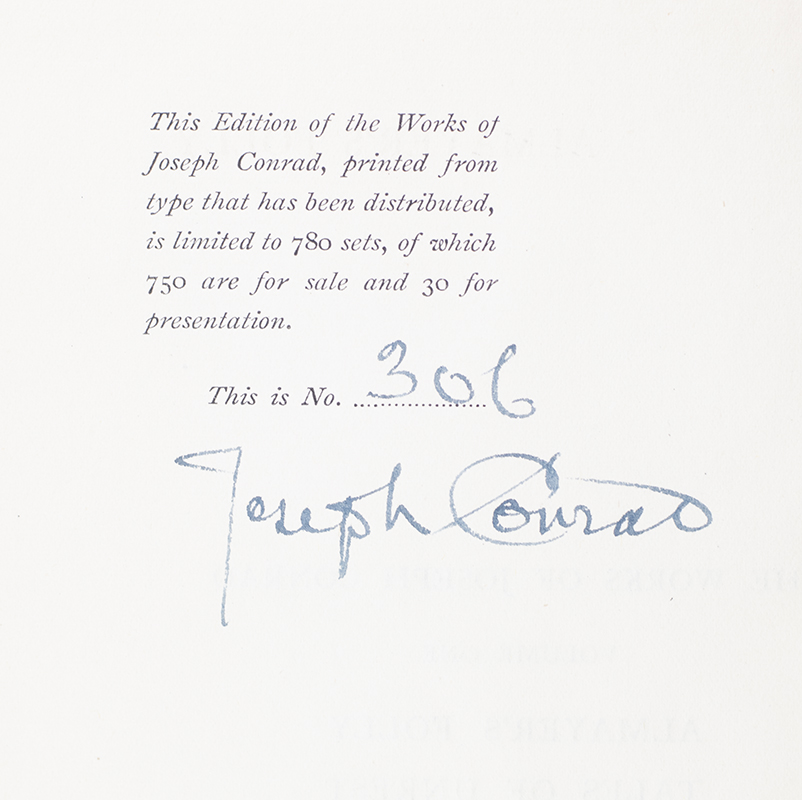 This Edition of the Works of
Joseph Conrad, printed from
type that has been distributed,
is limited to 780 sets, of which
750 are for sale and 30 for
presentation.
This is No. 306
Joseph Conrad